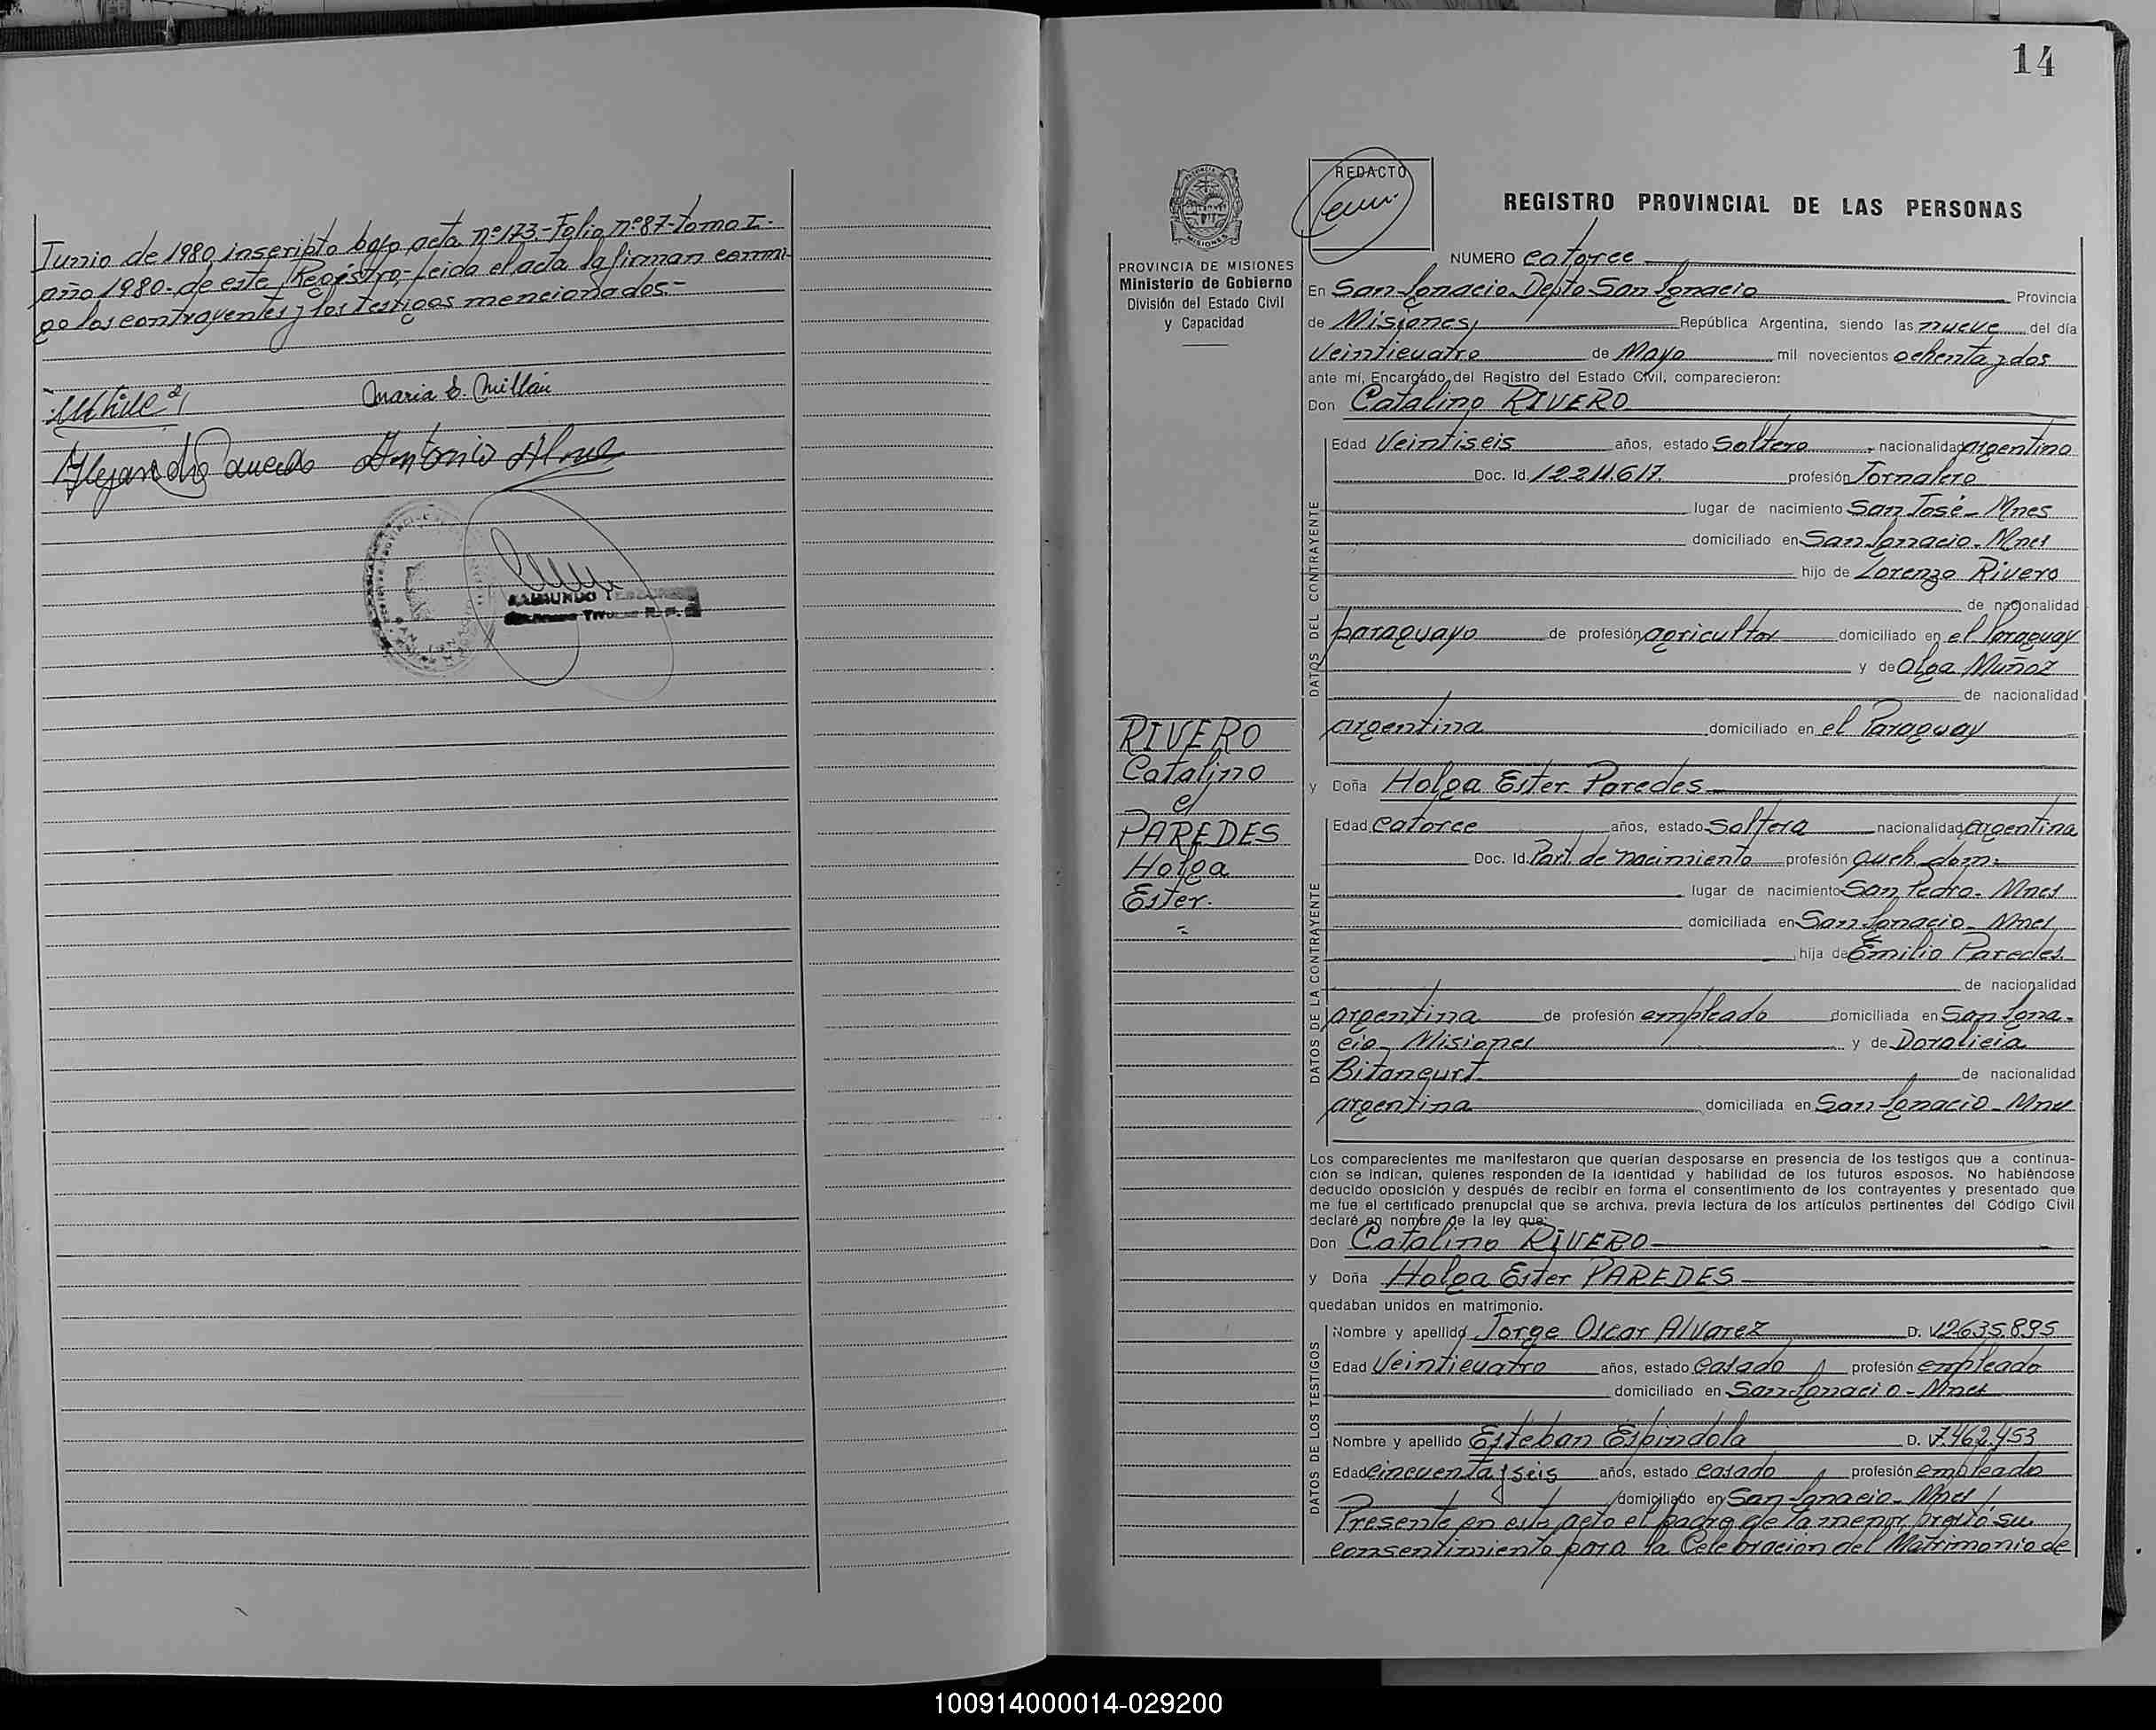 Junio de 1980, inscripto bajo acta nº 173.- Folio nº 87- tomo I-
año 1980- de este Registro,- Leida el acta la firman conmi-
go los contrayentes y los testigos mencionados.-
Maria E. Millán
Antonio
14
REDACTO
REGISTRO PROVINCIAL DE LAS PERSONAS
PROVINCIA DE MISIONES
Ministerio de Gobierno
División del Estado Civil
y Capacidad
NUMERO catorce
En San Ignacio Depto San Ignacio Provincia
de Misiones República Argentina, siendo las nueve del día
veinticuatro de Mayo mil novecientos ochenta y dos
ante mí, Encargado del Registro del Estado Civil, comparecieron:
Don Catalino RIVERO
DATOS DEL CONTRAYENTE
Edad Veintiseis años, estado soltero nacionalidad argentino
Doc. Id. 12.211.617. profesión Jornalero
lugar de nacimiento San José - Mnes
domiciliado en San Ignacio - Mnes
hijo de Lorenzo Rivero
de nacionalidad
paraguayo de profesión agricultor domiciliado en el Paraguay
y de Olga Muñoz
de nacionalidad
argentina domiciliado en el Paraguay
RIVERO
Catalino
e/
PAREDES
Holga
Ester.
y Doña Holga Ester Paredes
DATOS DE LA CONTRAYENTE
Edad catorce años, estado soltera nacionalidad argentina
Doc. Id. Part. de nacimiento profesión queh. dom.
lugar de nacimiento San Pedro - Mnes
domiciliada en San Ignacio - Mnes
hija de Emilio Paredes
de nacionalidad
argentina de profesión empleado domiciliada en San Igna-
cio - Misiones y de Doralicia
Bitancurt de nacionalidad
argentina domiciliada en San Ignacio - Mnes
Los comparecientes me manifestaron que querían desposarse en presencia de los testigos que a continua-
ción se indican, quienes responden de la identidad y habilidad de los futuros esposos. No habiéndose
deducido oposición y después de recibir en forma el consentimiento de los contrayentes y presentado que
me fue el certificado prenupcial que se archiva, previa lectura de los artículos pertinentes del Código Civil
declaré en nombre de la ley que:
Don Catalino RIVERO
y Doña Holga Ester PAREDES
quedaban unidos en matrimonio.
DATOS DE LOS TESTIGOS
Nombre y apellido Jorge Oscar Alvarez D. 12.635.895
Edad Veinticuatro años, estado casado profesión empleado
domiciliado en San Ignacio - Mnes
Nombre y apellido Esteban Espindola D. 7.462.453
Edad cincuenta y seis años, estado casado profesión empleado
domiciliado en San Ignacio - Mnes
Presente en este acto el padre de la menor, prestó su
consentimiento para la Celebracion del Matrimonio de
100914000014-029200